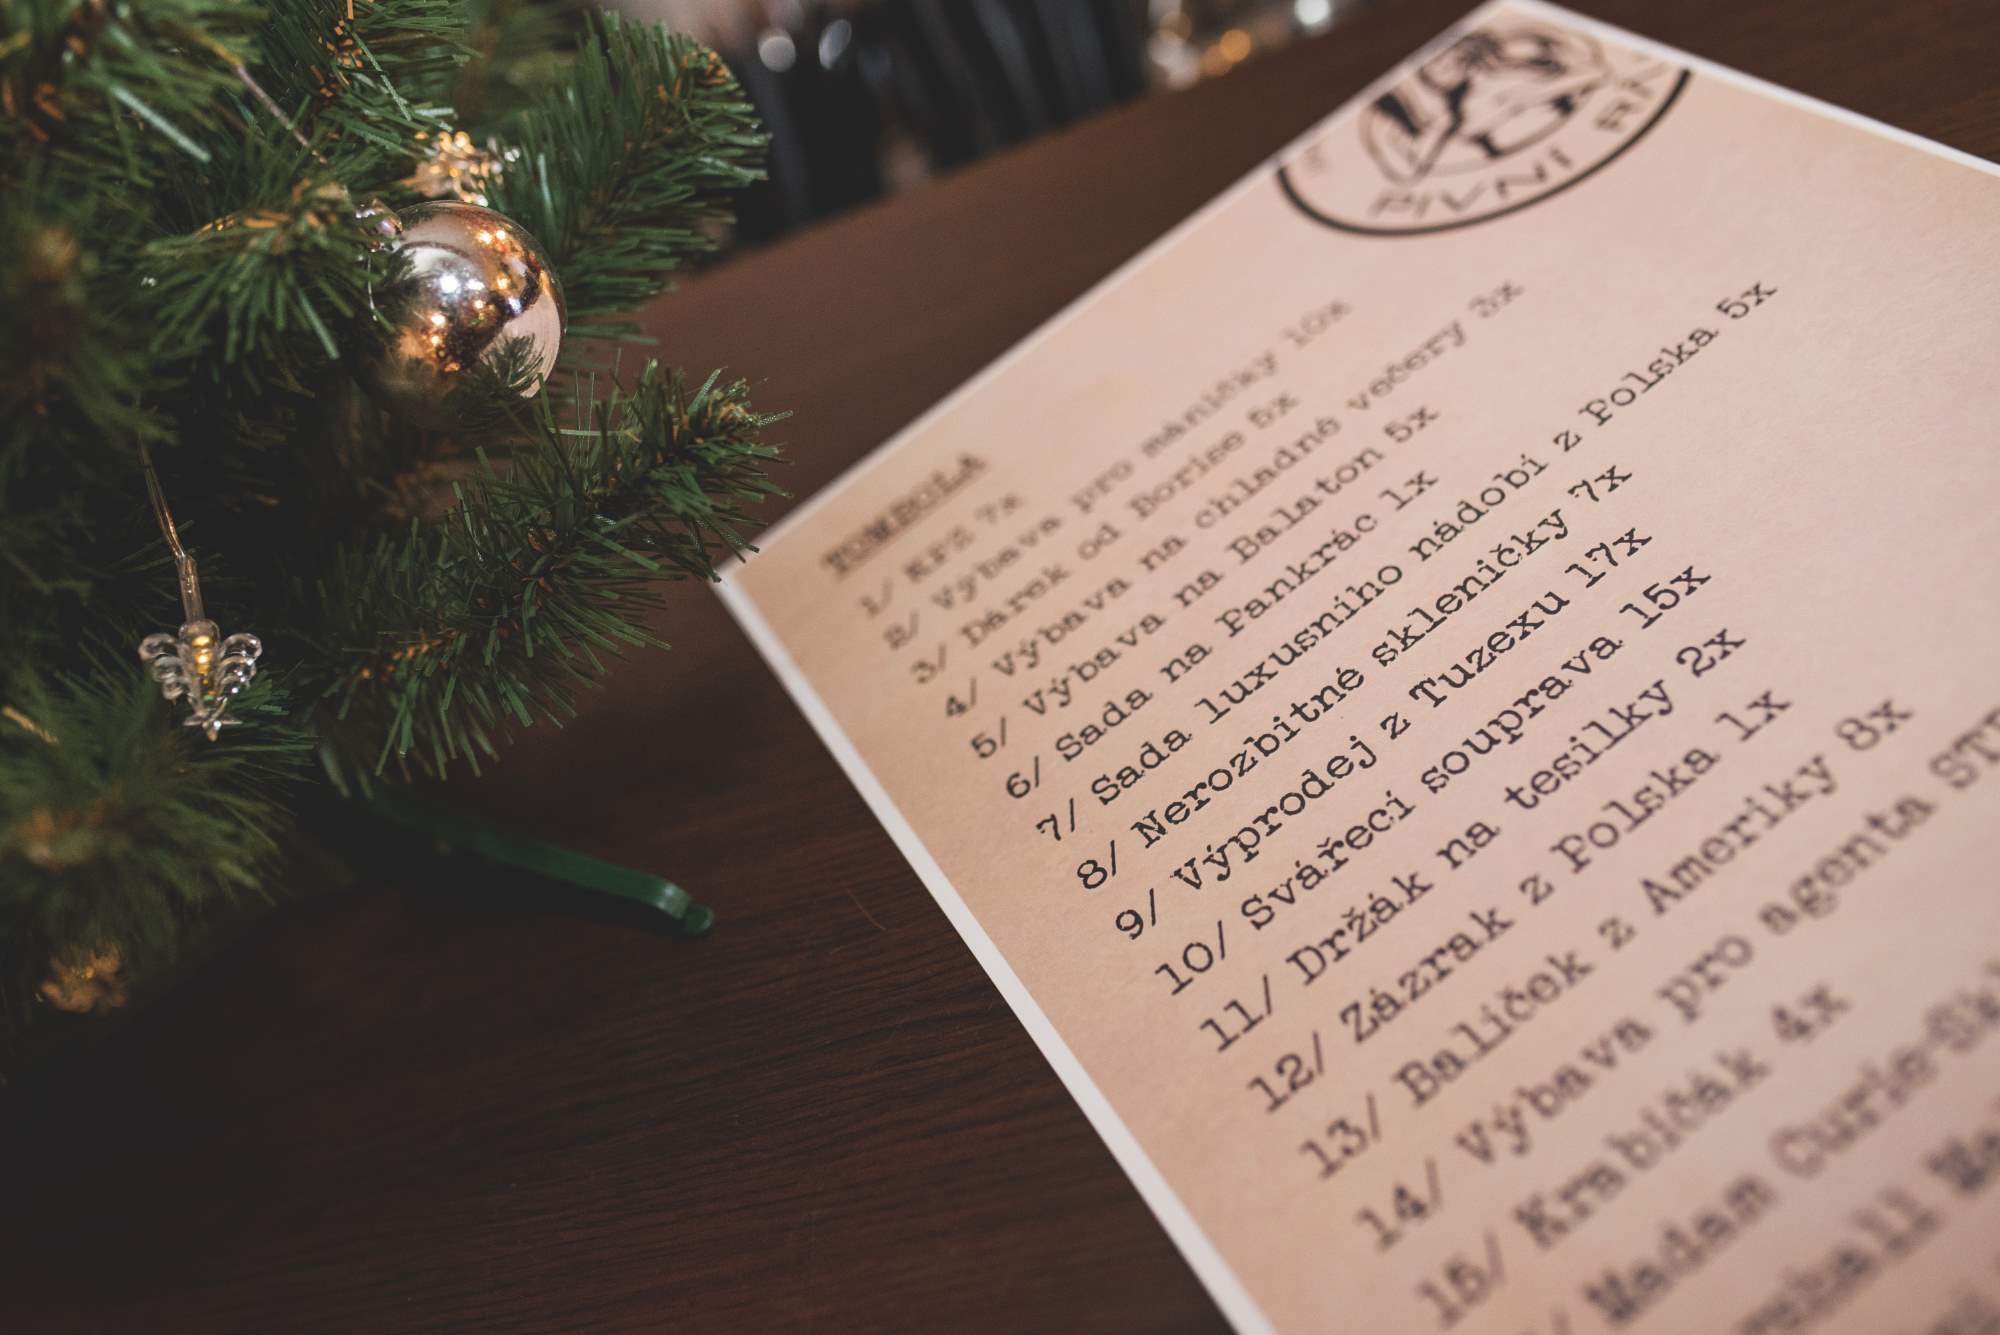 PIVNÍ
TOMBOLA
1/ KPZ 7x
2/ Výbava pro máničky 10x
3/ Dárek od Borise 5x
4/ Výbava na chladné večery 3x
5/ Výbava na Balaton 5x
6/ Sada na Pankrác 1x
7/ Sada luxusního nádobí z Polska 5x
8/ Nerozbitné skleničky 7x
9/ Výprodej z Tuzexu 17x
10/ Svářecí souprava 15x
11/ Držák na tesilky 2x
12/ Zázrak z Polska 1x
13/ Balíček z Ameriky 8x
14/ Výbava pro agenta
15/ Krabičák 4x
Madam Curie